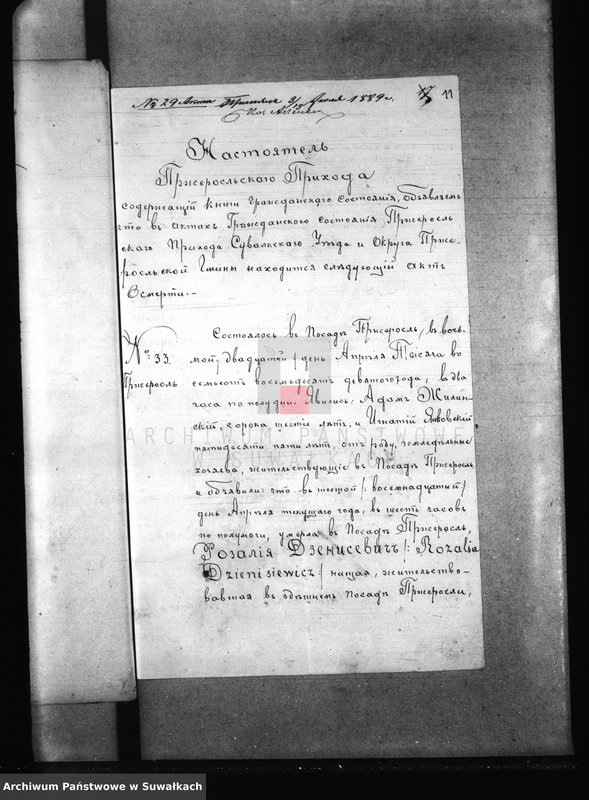 № 29 Акта 3/15 Июля 1889 г.
11
Настоятель
Пржеросльскаго Прихода
содержащій книги гражданскаго состоянія, объявляетъ
что въ актахъ Гражданскаго состоянія Пржеросль
скаго Прихода Сувалкскаго Уѣзда и Округа Прже-
росльской Гмины находится слѣдующій актъ
Осмерти.-
№ 33.
Пржеросль
Состоялось въ Посадѣ Пржеросль, въ вось-
мой /двадцатый/ день Апрѣля Тысяча во
семьсотъ восемьдесятъ девятого года, въ два
часа по полудни. Явились: Адамъ Жилин
скій, сорока шести лѣтъ, и Игнатій Янковскій
пятидесяти пяти лѣтъ, отъ роду, земледѣльные
хозяева, жительствующіе въ Посадѣ Пржеросль,
и объявили: что въ шестой /: восемнадцатый /
день Апрѣля текущаго года, въ шесть часовъ
по полуночи, умерла въ Посадѣ Пржеросль,
Розалія Дзенисевичъ /: Rozalia
Dzienisiewicz / нищая, жительство-
вавшая въ здѣшнемъ посадѣ Пржеросли,
ARCHIWUM PAŃSTWOWE
SUWAŁKACH
Archiwum Państwowe w Suwałkach